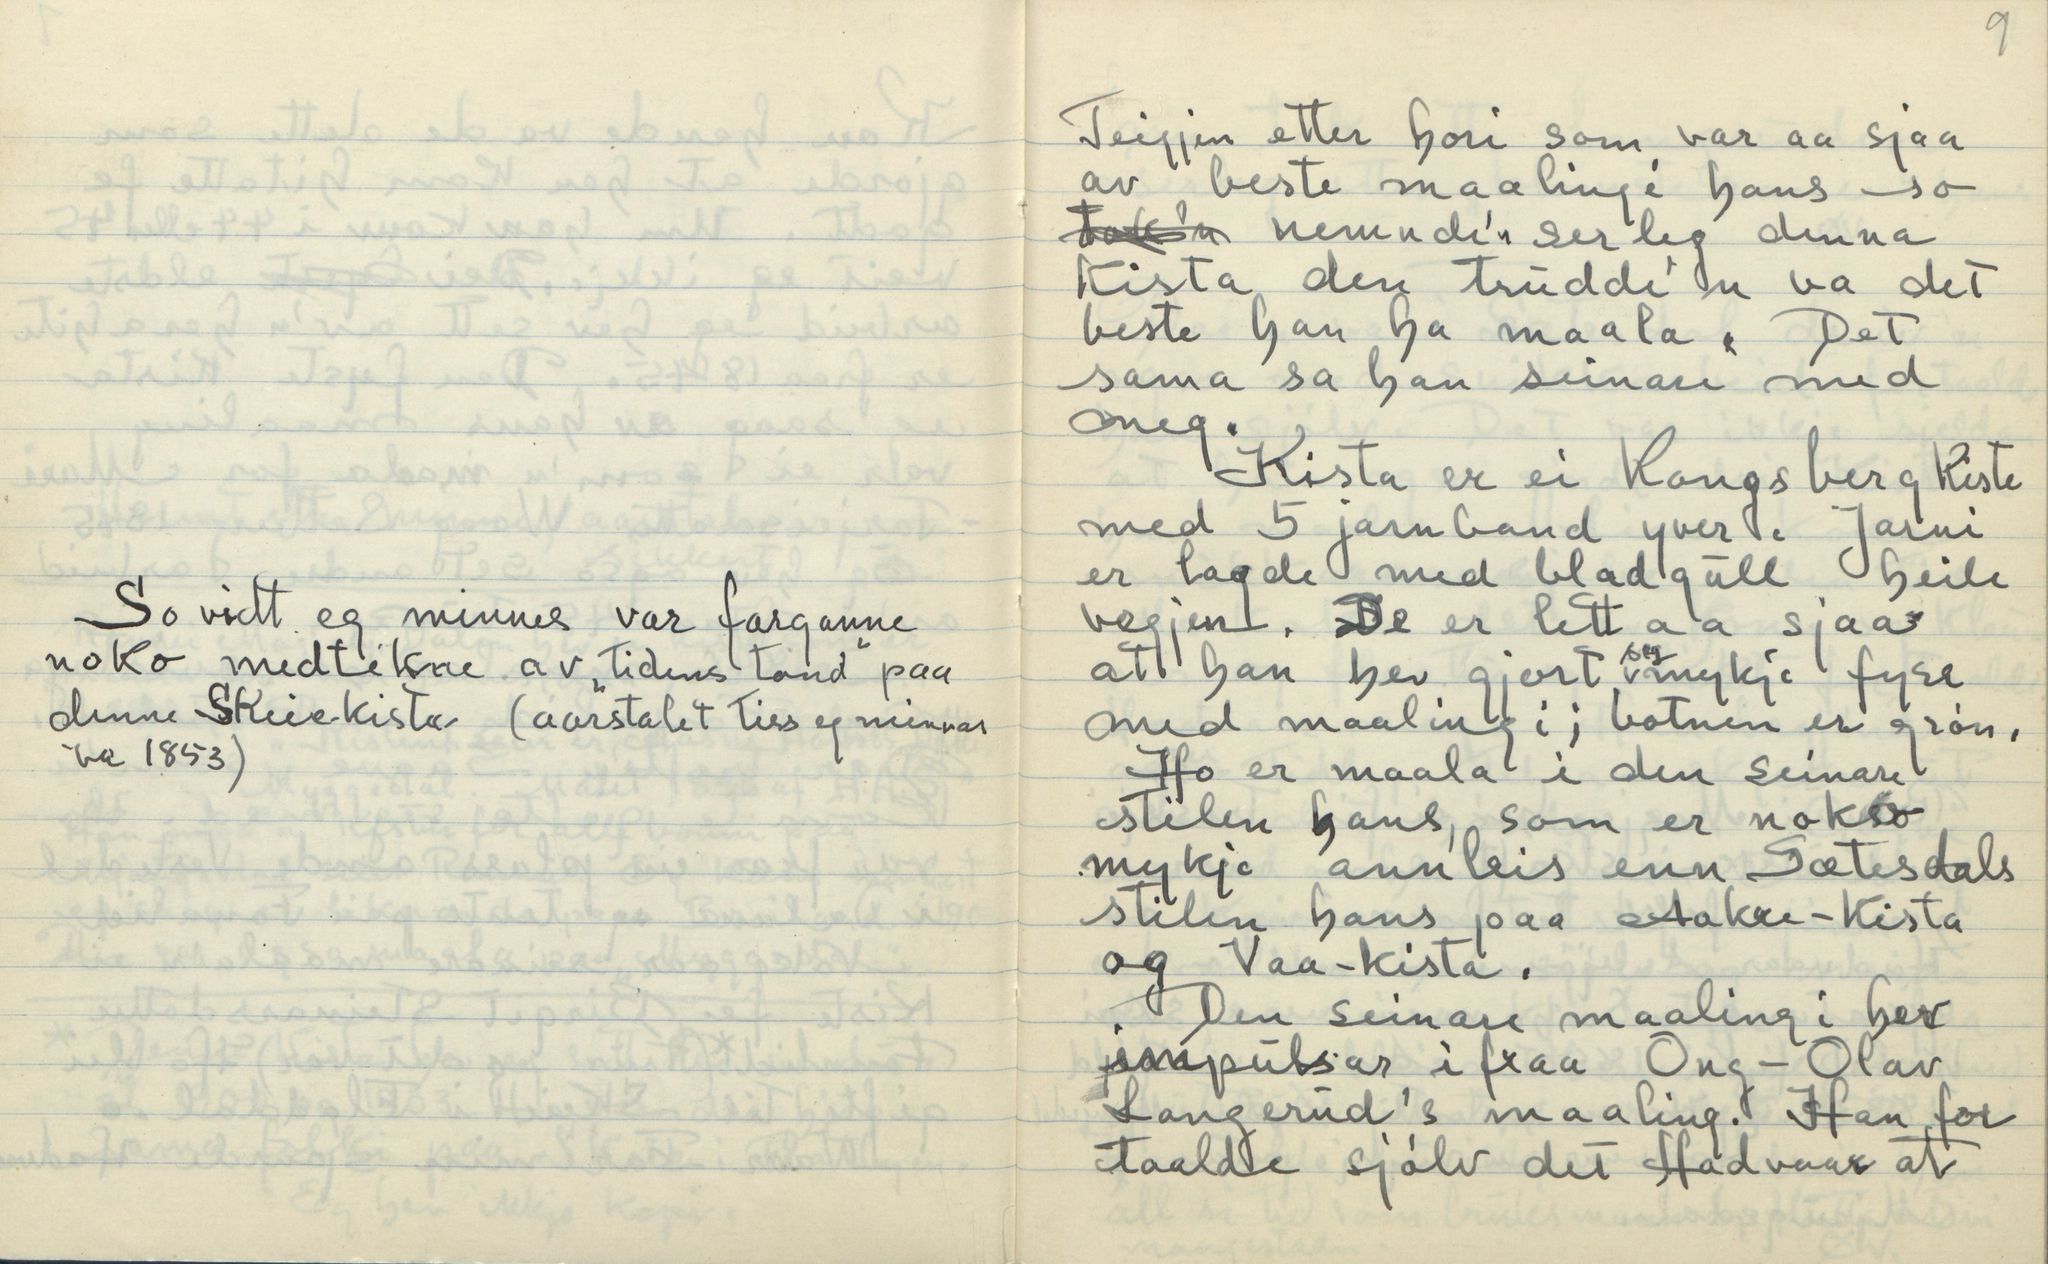 So vidt eg minnes var farganne
noko medtekne av „tidens tand" paa
denne Skeie-kista (aarstalet tiss eg minnas
va 1853)
9
Teigjen etter hori som var aa sjaa
av beste maalingi hans so
nemnde'n serleg denna
Kista den trudde'n va det
beste han ha maala. Det
sama sa han seinare med
meg.
Kista er ei Kongsbergkiste
med 5 jarnband yver. Jarni
er lagde med bladgull heile
vegjen. De er lett aa sjaa
at han hev gjort seg mykje fyre
med maalingi; botnen er grøn.
Ho er maala i den seinare
stilen hans, som er nokso
mykje annleis enn Sætesdals
stilen hans paa Aakre-Kista
og Vaa-kista.
Den seinare maalingi hev
impulsar ifraa Ong-Olav
Langerud's maaling. Han for
taalde sjølv det Hadvaar at